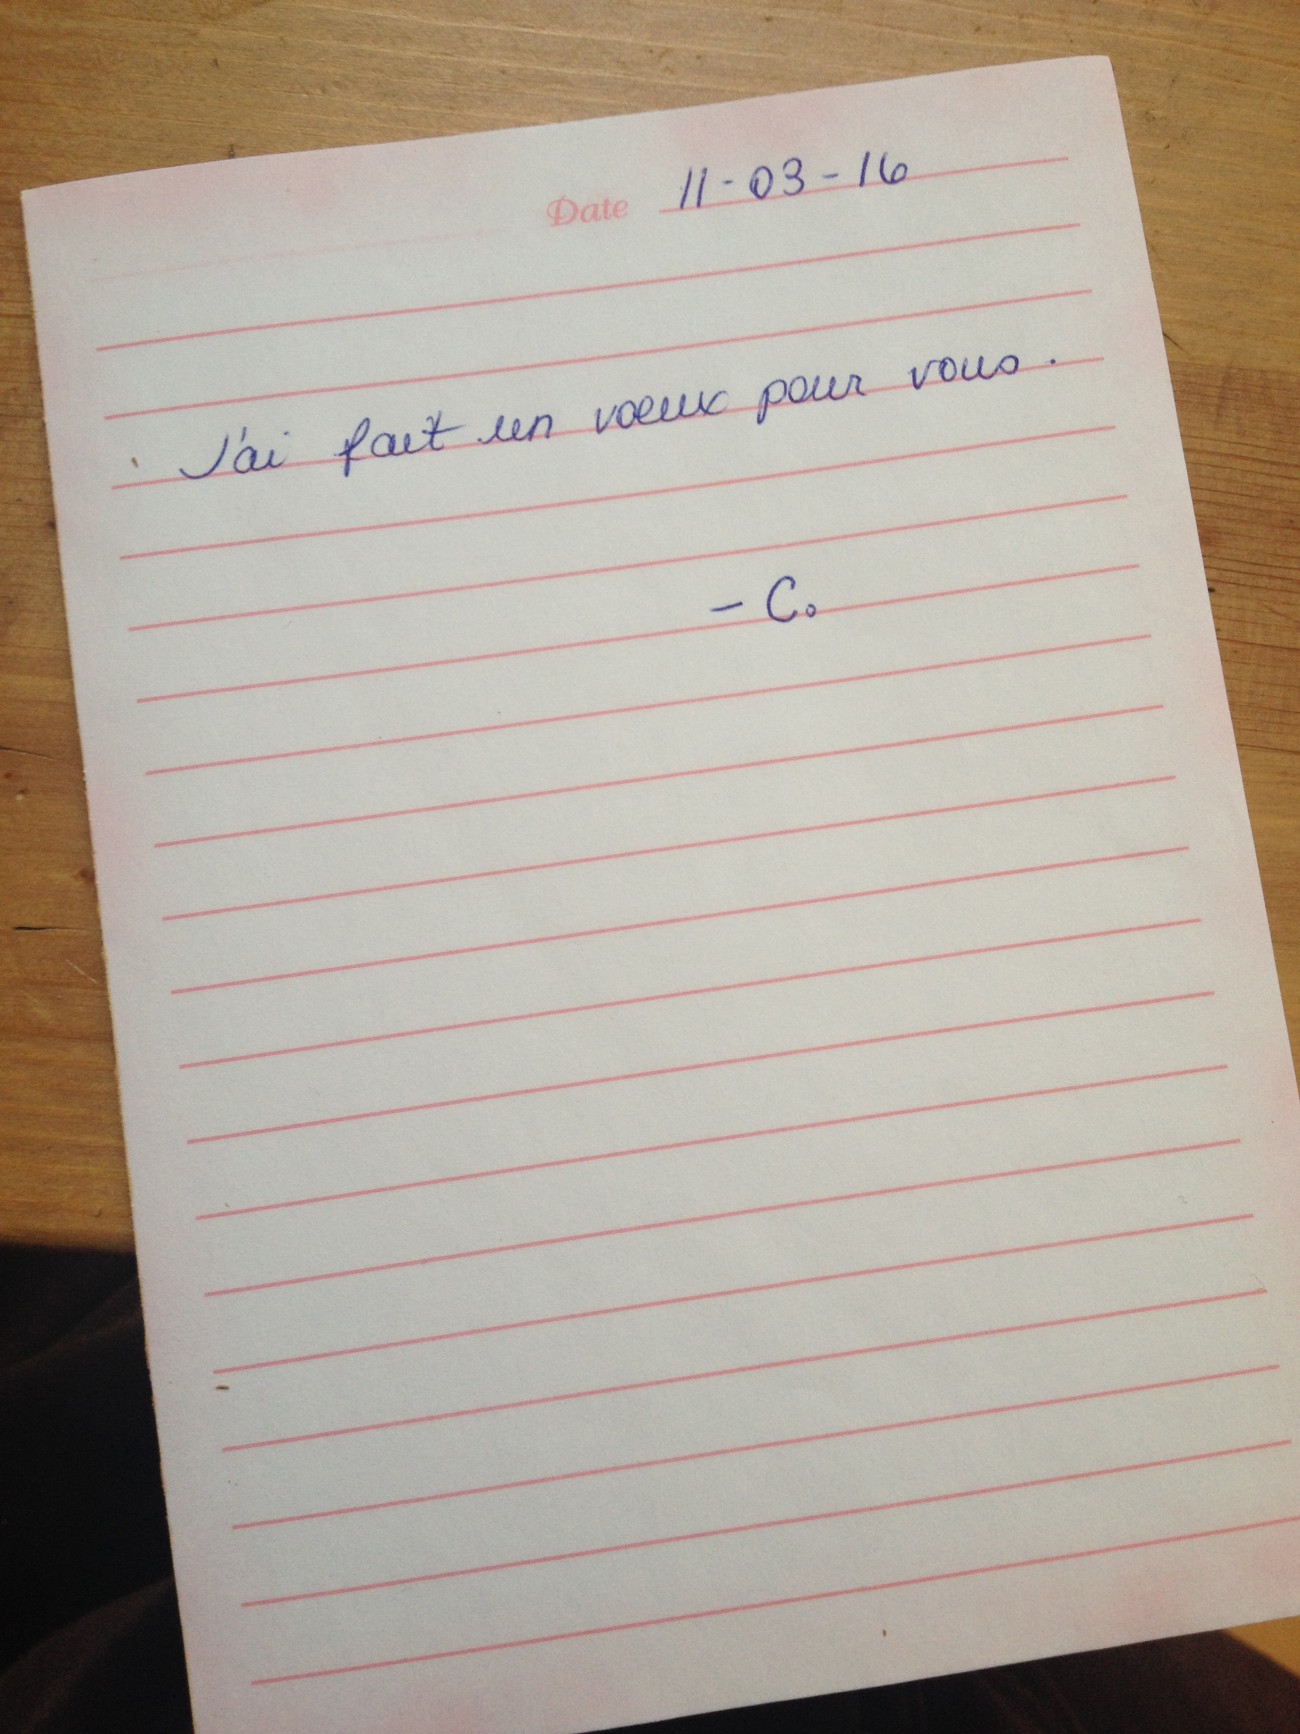 Date 11-03-16
J'ai fait un voeux pour vous.
- C.